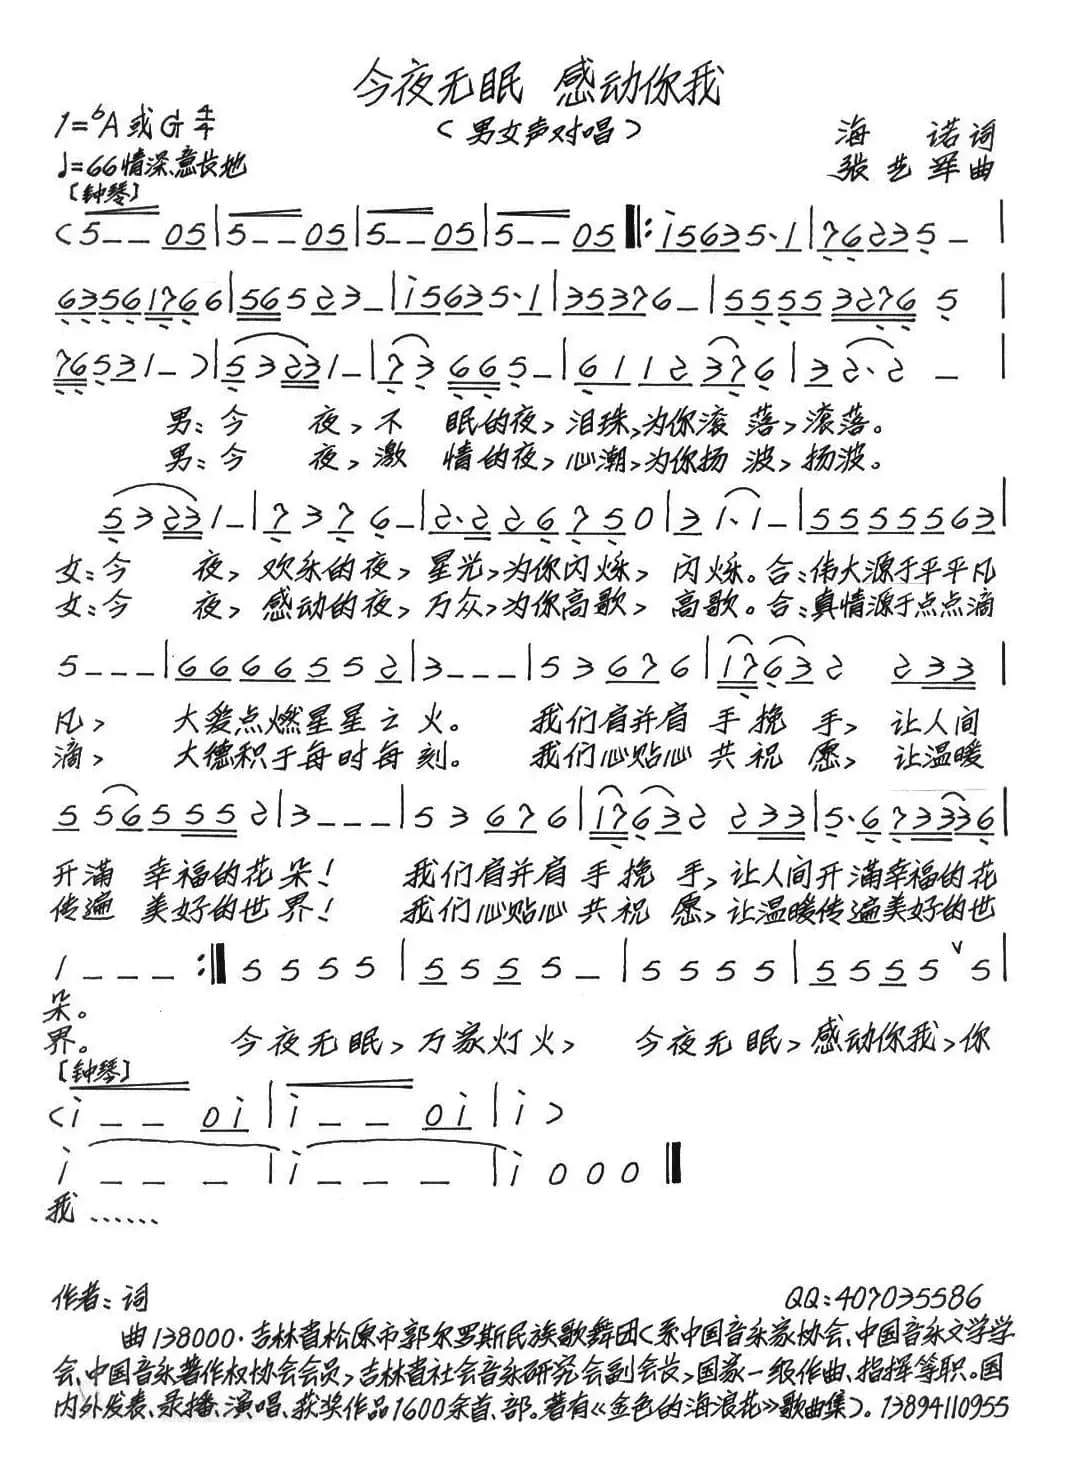 今夜无眠 感动你我
（男女声对唱）
1=♭A或G 4/4
♩=66情深、意长地
海 诺词
张艺军曲
〔钟琴〕
（5 – – 05 | 5 – – 05 | 5 – – 05 | 5 – – 05 ‖: i5635·1 | 76235 – |
63561766 | 565 23 – | i5635·1 | 35376 – | 5555 3276 5 |
76531 – ）| 53231 – | 73 665 – | 6112 376 | 32·2 – |
男：今 夜，不 眠的夜，泪珠，为你滚 落，滚落。
男：今 夜，激 情的夜，心潮，为你扬 波，扬波。
53231 – | 7376 – | 2·226750 | 31·1 – | 55555563 |
女：今 夜，欢乐的夜，星光，为你闪烁， 闪烁。合：伟大源于平平凡
女：今 夜，感动的夜，万众，为你高歌， 高歌。合：真情源于点点滴
5 – – – | 6666552 | 3 – – – | 53676 | 17632 233 |
凡， 大爱点燃星星之火。 我们肩并肩 手 挽 手，让人间
滴， 大德积于每时每刻。 我们心贴心 共 祝 愿，让温暖
5565552 | 3 – – – | 53676 | 17632 233 | 5·673336 |
开满 幸福的花朵！ 我们肩并肩 手 挽 手，让人间开满幸福的花
传遍 美好的世界！ 我们心贴心 共 祝 愿，让温暖传遍美好的世
1 – – – :‖ 5555 | 5555 – | 5555 | 5555 ∨ 5 |
朵。
界。 今夜无眠，万家灯火， 今夜无眠，感动你我，你
〔钟琴〕
（i – – 0i | i – – 0i | i ）
i – – – | i – – – | i 000 ‖
我……
作者：词 QQ:407035586
曲138000·吉林省松原市郭尔罗斯民族歌舞团（系中国音乐家协会、中国音乐文学学
会、中国音乐著作权协会会员，吉林省社会音乐研究会副会长，国家一级作曲、指挥等职。国
内外发表、录播、演唱、获奖作品1600余首、部。著有《金色的海浪花》歌曲集）。13894110955